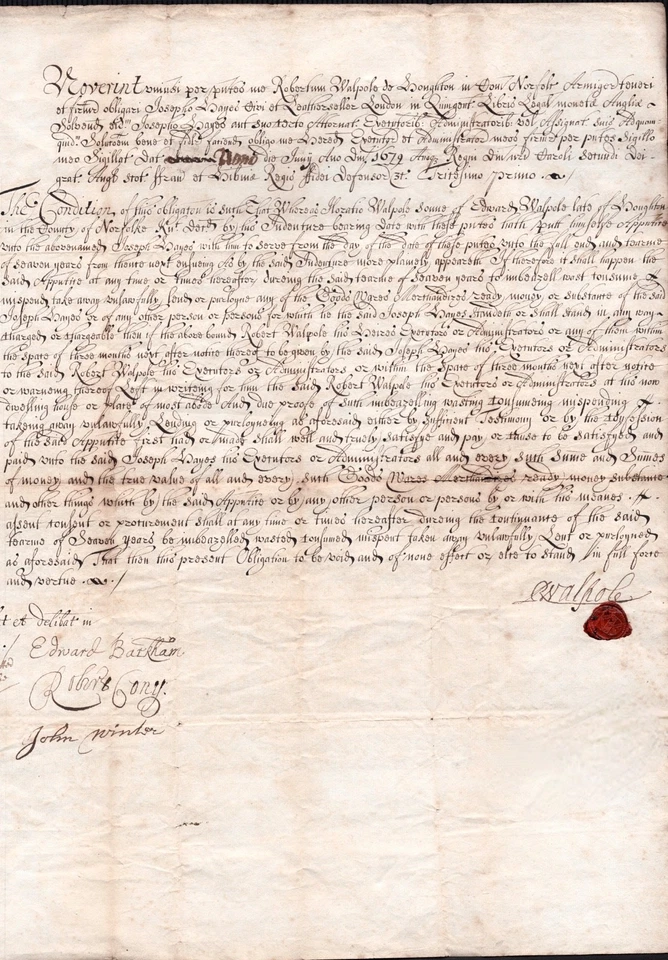 Noverint universi per p'ntes me Robertum Walpole de Houghton in Com' Norfolc Armiger teneri
et firmit' obligari Josepho Hayes Civi et Leatherseller London in Quingent' Libris Legal' monetæ Angliæ
Solvend' eid'm Josepho Hayes aut suo certo Attornat' Executorib' Administratorib' vel Assignat' suis Ad quam
quid'm Soluc'oem bene et fidel' faciend' obligo me Hered' Executor' et Administrator' meos firmit' per p'ntes Sigillo
meo Sigillat' Dat' Nono die Junij Ano Dni 1679 Anoq Regni Dni n'ri Caroli Secundi Dei
grat' Angl' Scot' Fran' et Hib'niæ Regis fidei Defensor' &c Tricesimo primo
The Condition of this obligac'on is Such That Whereas Horatio Walpole sonne of Edward Walpole late of Houghton
in the County of Norfolke Kn't dec'd by his Indenture bearing Date with these p'ntes hath putt himselfe Apprentice
unto the abovenamed Joseph Hayes with him to Serve from the day of the Date of these p'ntes unto the full end and tearme
of seaven years from thence next ensueing As by the said Indenture more plainely appeareth If therefore it shall happen the
Said Apprntice at any time or times hereafter dureing the said tearme of Seaven years to imbeazell wast consume
mispend take away unlawfully lend or purloyne any of the Goods Wares Merchandizes ready money or Substance of the said
Joseph Hayes or of any other person or persons for which he the said Joseph Hayes standeth or shall stand in any way
Charged or chargeable then if the above bound Robert Walpole his Heires Executors or Administrators or any of them within
the space of three months next after notice thereof to be given by the said Joseph Hayes his Executors or Administrators
to the said Robert Walpole his Executors or Administrators or within the Space of three months next after notice
or warneing thereof Left in writeing for him the said Robert Walpole his Executors or Administrators at his now
dwelling house or place of most abode And due proofe of Such imbeazelling wasting consumeing mispending
takeing away unlawfully Lending or purloyneing as aforesaid either by Sufficient Testimony or by the confession
of the said Apprntice first had or made shall well and truely Satisfye and pay or cause to be Satisfyed and
paid unto the said Joseph Hayes his Executors or Administrators all and every such Sume and Sumes
of money and the true value of all and every such Goods Wares Merchandizes ready money substance
and other things which by the said Apprntice or by any other person or persons by or with his meanes
assent consent or procurement shall at any time or times hereafter dureing the continuance of the said
tearme of Seaven years be imbeazelled wasted consumed mispent taken away unlawfully Lent or purloyned
as aforesaid That then this present Obligation to be void and of none effect or else to stand in full force
and vertue
RWalpole
t et delibat in
Edward Barkham
Robert Cony.
John Winter